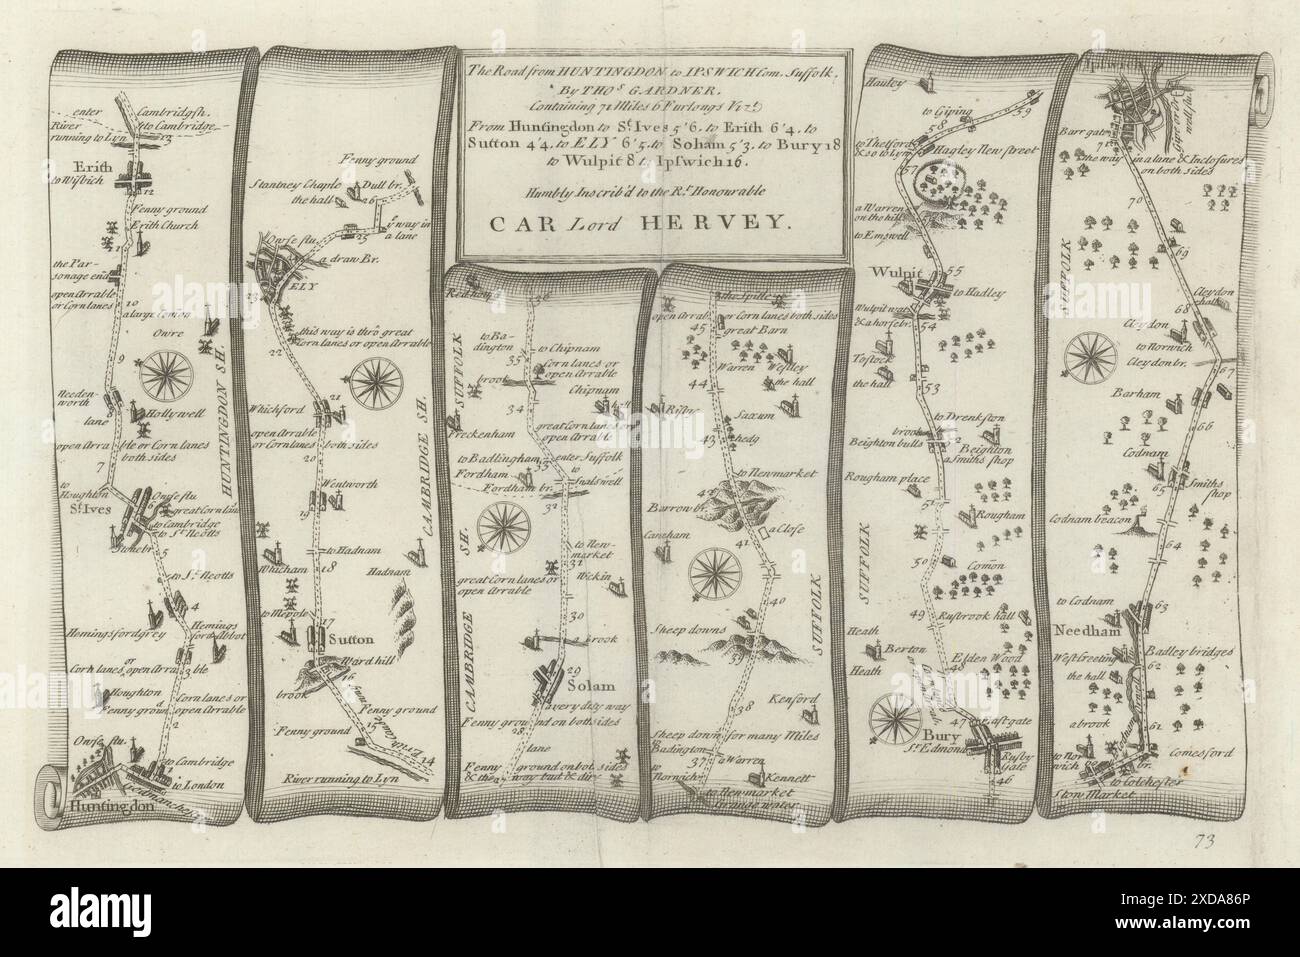 The Road from HUNTINGDON to IPSWICH Com. Suffolk.
By THOˢ GARDNER.
Containing 71 Miles 6 Furlongs Viz.ᵗ
From Huntingdon to Sᵗ. Ives 5'6. to Erith 6'4. to
Sutton 4'4. to ELY 6'5. to Soham 5'3. to Bury 18
to Wulpit 8 to Ipswich 16.
Humbly Inscrib'd to the Rᵗ Honourable
CAR Lord HERVEY.
enter
Cambridgsh.
to Cambridge
River
running to Lyn
13
Erith
to Wisbich
12
Fenny ground
Erith Church
11
the Par-
sonage end
open Arrable
or Corn lanes
10
a large comon
Owre
9
Needen-
worth
lane
Hollywell
open Arra
ble or Corn lanes
both sides
7
to
Houghton
Sᵗ. Ives
Owse flu
6
great Corn lane
to Cambridge
to Sᵗ. Neotts
Stone br.
5
to Sᵗ. Neotts
4
Hemingsford grey
Hemings
ford Abbot
Corn lanes or open Arra
ble
3
Houghton
Fenny ground
Corn lanes or
open Arrable
2
Owse flu.
to Cambridge
to London
Huntingdon
Godmanchester
HUNTINGDON SH.
Fenny ground
Stantney Chaple
the hall
Dull br.
26
yᵉ way in
a lane
25
a draw Br.
Owse flu
ELY
23
this way is thrō great
Corn lanes or open Arrable
22
21
Whichford
open Arrable
or Corn lanes
both sides
20
Wentworth
19
to Hadnam
Whicham
18
Hadnam
to Mepole
17
Sutton
Ward hill
brook
16
Fenny ground
15
Fenny ground
14
River running to Lyn
CAMBRIDGE SH.
Red house
36
to Ba-
dington
35
to Chipnam
Corn lanes or
open Arrable
brook
Chipnam
34
hall
Freckenham
great Corn lanes or
open Arrable
to Badlingham
33
enter Suffolk
Fordham
to
Snalswell
Fordham br.
32
to New-
market
31
great Corn lanes or
open Arrable
Wickin
30
a brook
29
Solam
every dity way
Fenny ground on both sides
28
lane
Fenny
ground on bot. sides
& the
way bad & dirty
SUFFOLK
CAMBRIDGE
SH.
the Spittle
open Arra
or Corn lanes both sides
45
great Barn
Warren
Westley
44
the hall
Risby
Saxum
43
hedg
to Newmarket
42
Barrow br.
a Close
Caneham
41
40
Sheep downs
39
Kenford
38
Sheep down for many Miles
Badington
37
a Warren
to
Norwich
Kennett
to Newmarket
Grange water
SUFFOLK
Hauley
to Giping
59
58
to Thetford
& so to Lyn
Hagley New street
57
a Warren
on the hill
to Emswell
Wulpit
55
to Hadley
Wulpit wat
& a horse br.
54
Tostock
the hall
53
to Drenkston
brook
52
Beighton bulls
Beighton
a Smiths shop
Rougham place
51
Rougham
Comon
50
Rustbrook hall
49
Heath
Berton
Elden Wood
Heath
48
47
East gate
Bury
Sᵗ Edmond
Rusby
Gate
46
SUFFOLK
Ipswich
Barr gate
71
the way in a lane & Inclosures
on both sides
70
69
Cleydon
hall
68
Cleydon
to Norwich
Cleydon br.
67
Barham
66
Codnam
65
Smiths
shop
Codnam beacon
64
to Codnam
63
Needham
West Creeting
Badley bridges
the hall
62
a brook
61
to Nor-
wich
Comesford
br.
to Colchester
Stow Market
SUFFOLK
73
alamy
2XDA86P
www.alamy.com